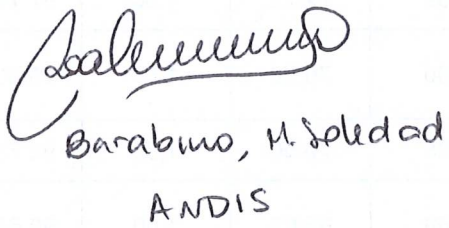 Barabino, M. Soledad
ANDIS